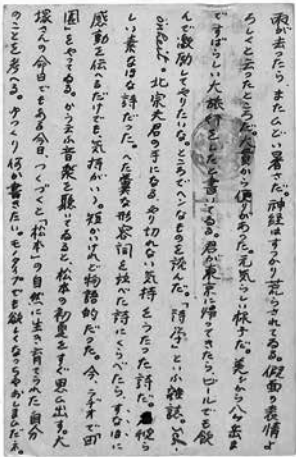 雨が去ったら、またひどい暑さだ。神経はすっかり荒らされてゐる。仮面の表情よ
ろしくと云ったところだ。から便りがあった。元気らしい様子だ。から八ヶ岳ま
ですばらしい大旅行をしたと書いてゐる。君が東京に帰ってきたら、ビールでも飲
んで激励してやりたいな。ところでヘンなものを読んだ。「詩学」といふ雑誌。
北宗大君の手になる、やり切れない気持をうたった詩だ。
しい素なほな詩だった。へたに異な形容詞を並べた詩にくらべたら、すなほに
感動を伝へるだけでも、気持がいゝ。短かいけれど物語的だった。今、ラヂオで「田
園」をやってゐる。かう云ふ音楽を聴いてゐると、松本の初夏をすぐ思ひ出す。犬
塚さんの命日でもある今日、つくづくと「松本」の自然に生き育てられた自分
のことを考へる。ゆっくり何か書きたい。モンタイプでも欲しくなっちゃあしまひだネ。